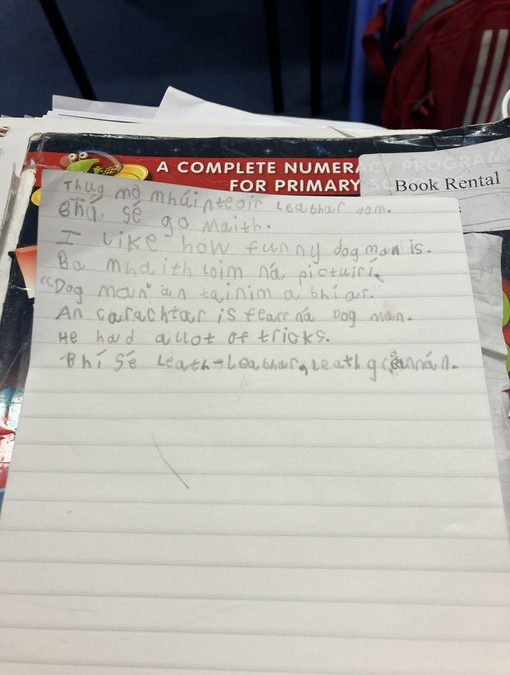 A COMPLETE NUMERACY PROGRAM
FOR PRIMARY
Book Rental
Thug mo mháinteoir leabhar dom.
Bhí sé go maith.
I like how funny dog man is.
Ba mhaith loim ná pictúirí.
"Dog man" an tainim a bhí ar.
An carachtar is fearr ná Dog Man.
He had allot of tricks.
Bhí sé leath-leabhar, leath greannán.